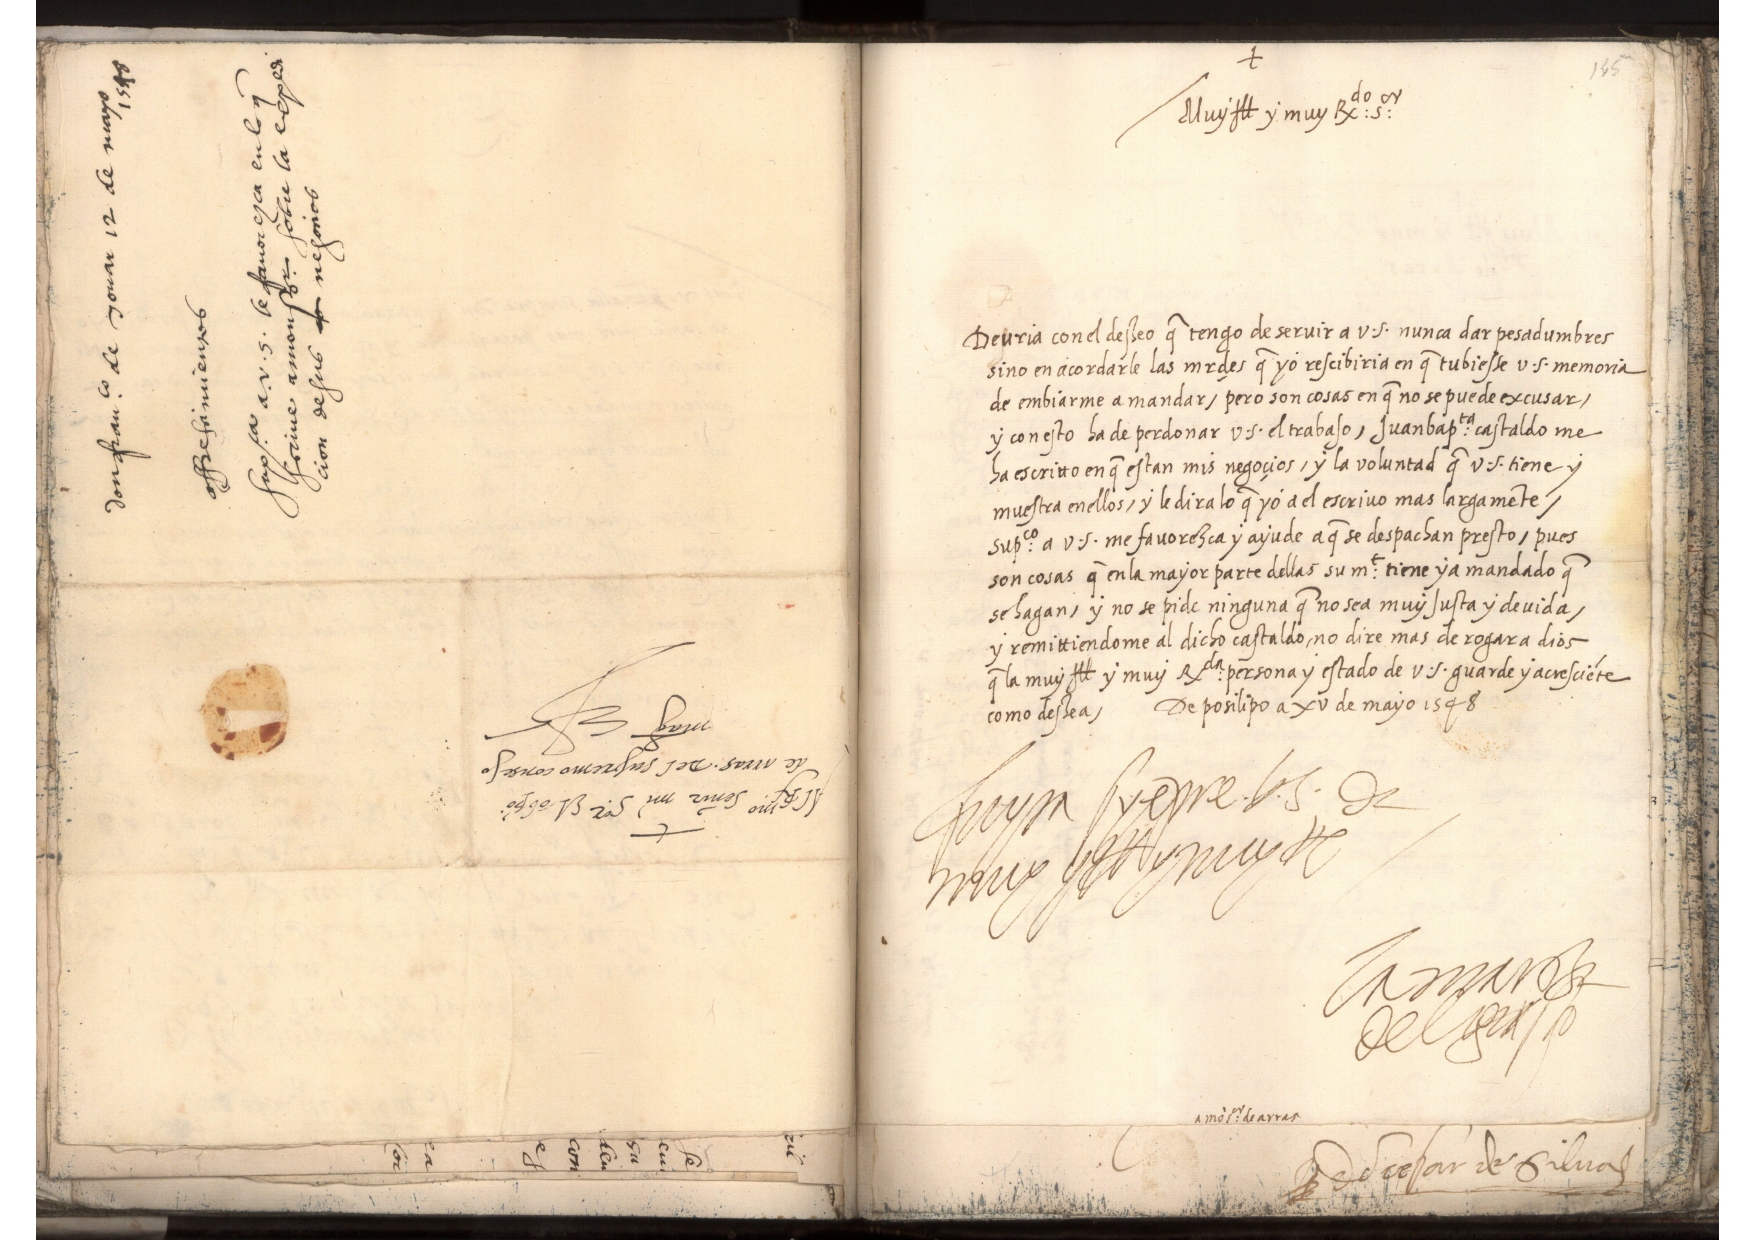 donfran.co de 12 de mayo
1548
offrescimientos
Supca a.v.s. le favorezca en lo q
sobre la expedi
cion de sus negocios
+
Al Rmo señor mi sor El obpo
de arras. Del supremo consejo
mag
+
155
Muy Ill y muy Rdo: sor:
Deuria con el desseo q̃ tengo de seruir a v.s. nunca dar pesadumbres
sino en acordarle las mrdes q̃ yo rescibiria en q̃ tubiesse v.s. memoria
de embiarme a mandar, pero son cosas en q̃ no se puede excusar,
y con esto ha de perdonar v.s. el trabajo, Juanbapta: castaldo me
ha escritto en q̃ estan mis negocios, y la voluntad q̃ v.s. tiene y
muestra enellos, y le dira lo q̃ yo a el escriuo mas largamẽte,
supco: a v.s. me fauorezca y ayude a q̃ se despachan presto, pues
son cosas q̃ en la mayor parte dellas su mt: tiene ya mandado q̃
se hagan, y no se pide ninguna q̃ no sea muy Justa y deuida,
y remittiendome al dicho castaldo, no dire mas de rogar a dios
q̃ la muy Ill y muy Rda: persona y estado de v.s. guarde y acresciẽte
como dessea, De posilipo a xv de mayo 1548
a v.s. de
muy y muy R
la marq
del gasto
a mosor: de arras
de silua